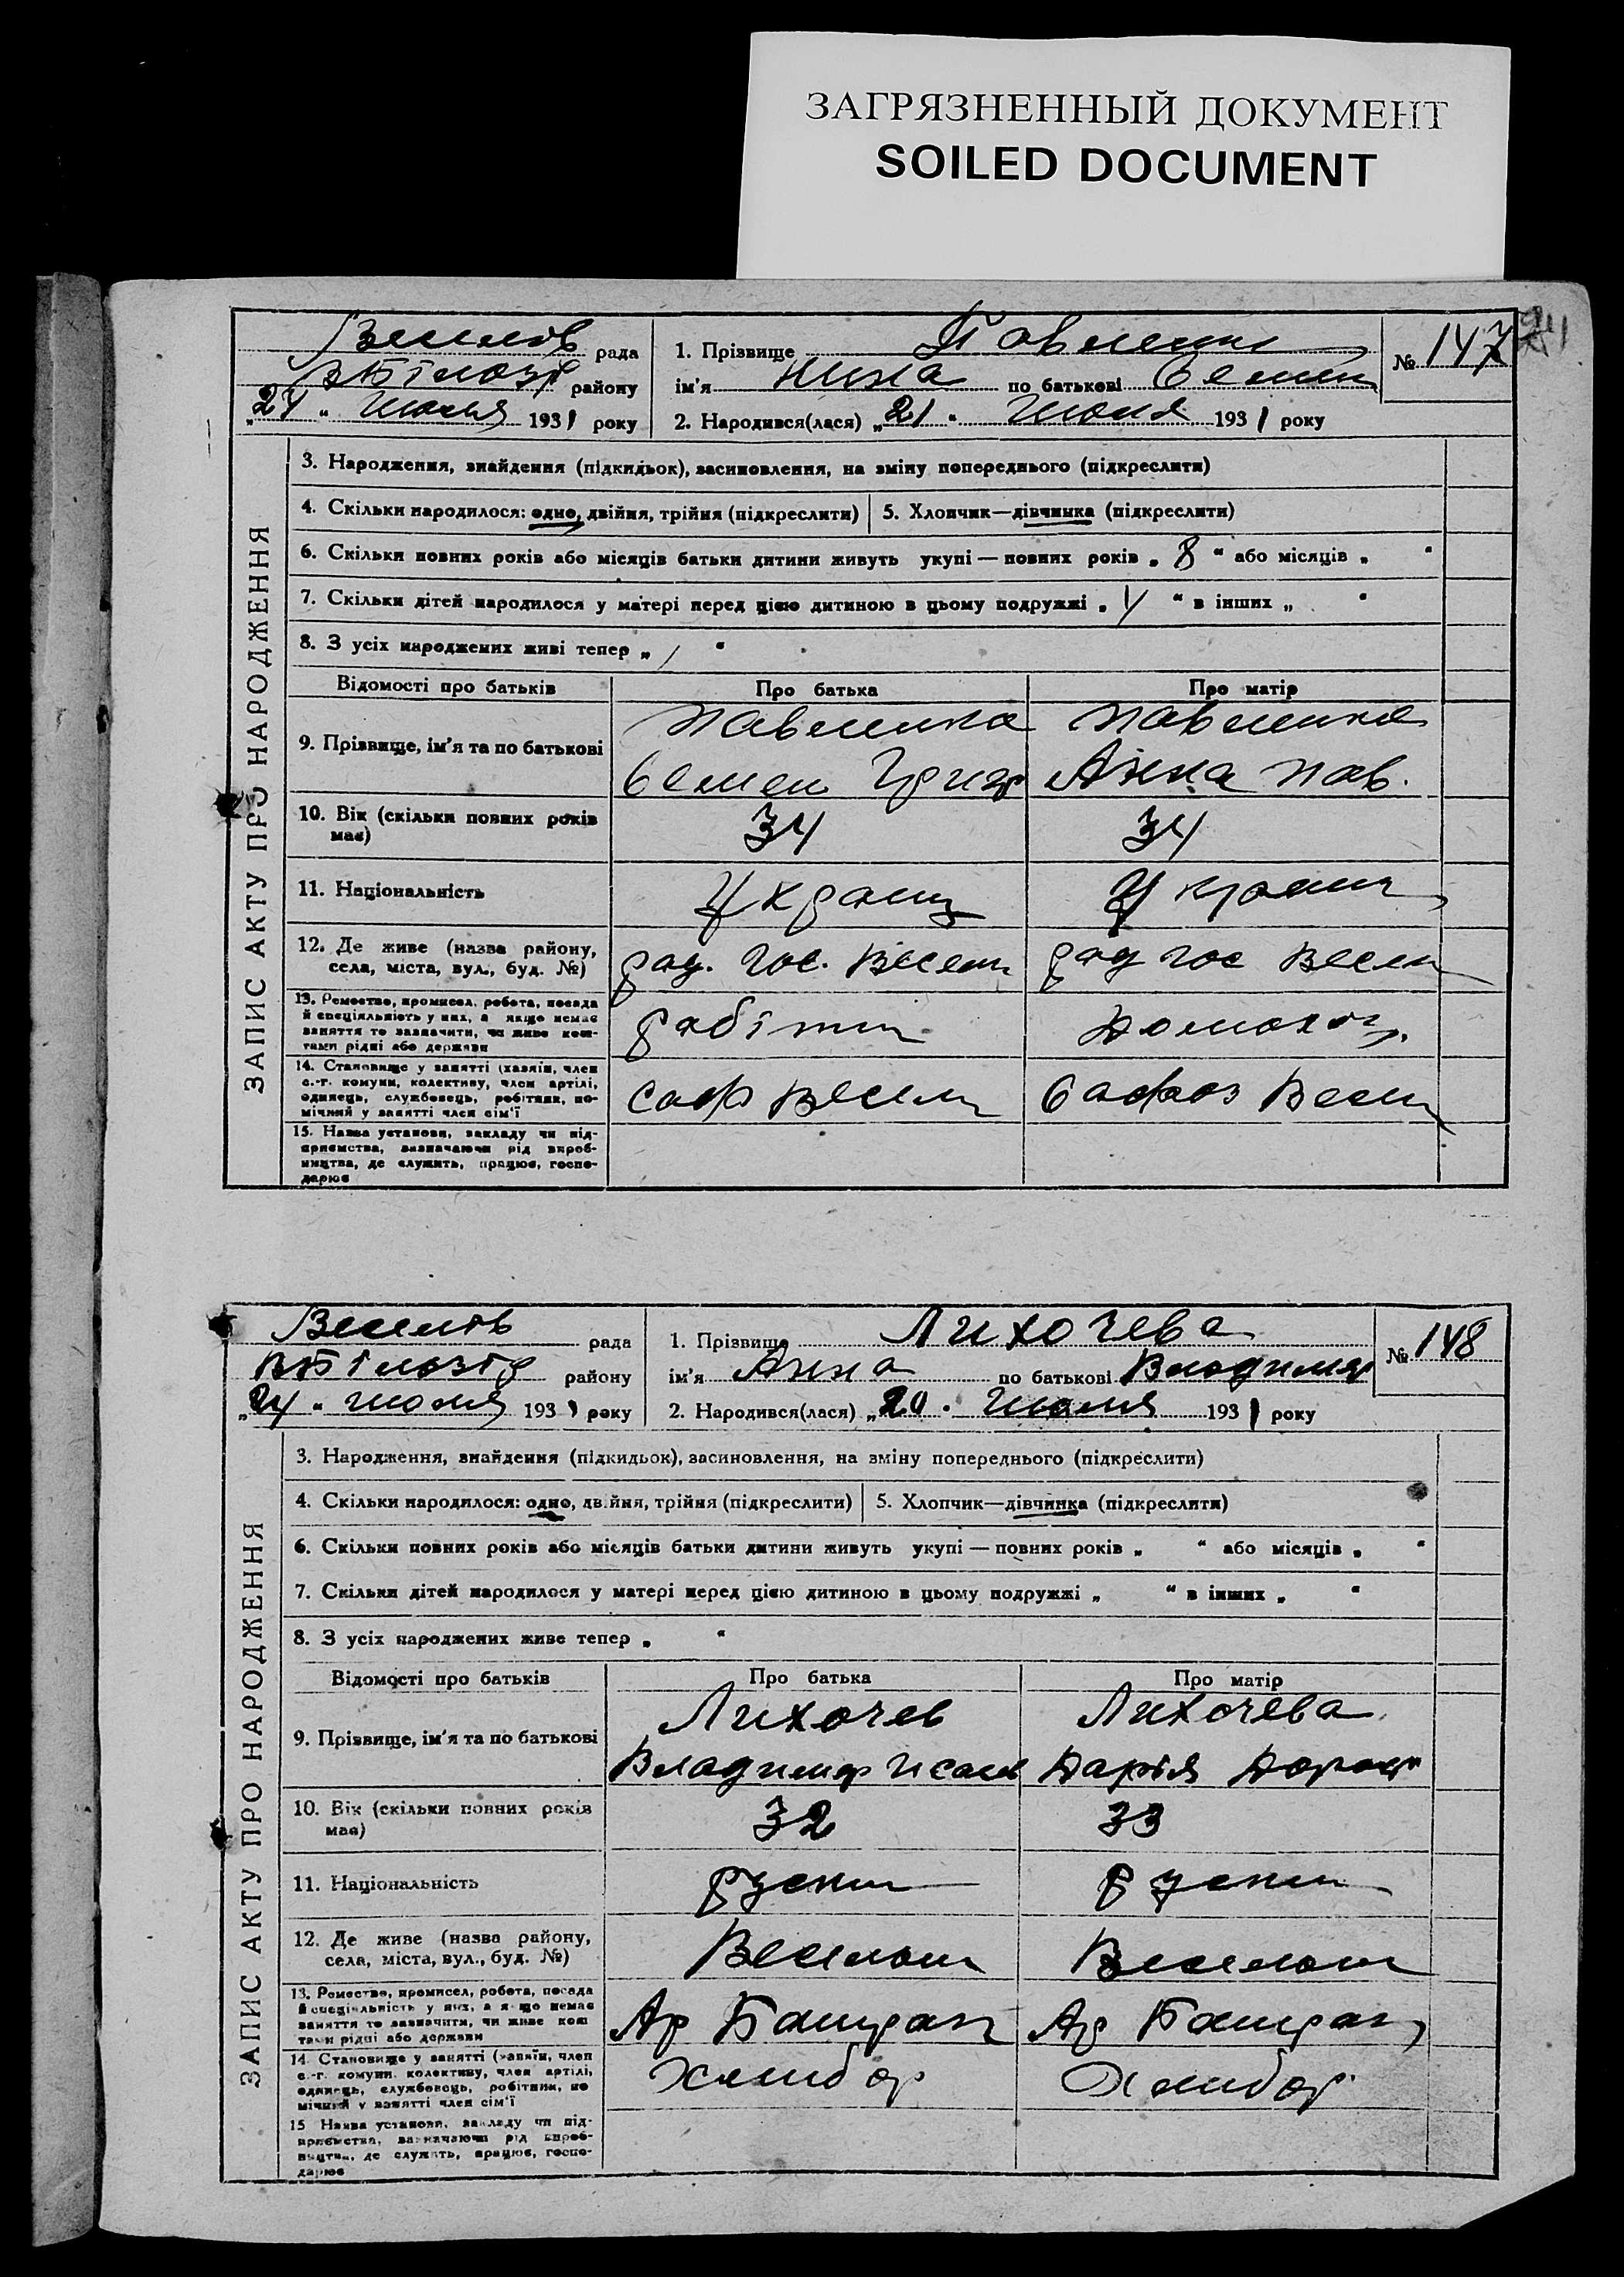 ЗАГРЯЗНЕННЫЙ ДОКУМЕНТ
SOILED DOCUMENT
ЗАПИС АКТУ ПРО НАРОДЖЕННЯ
Веселів рада
ВБілозір району
"24" Июля 1931 року
1. Прізвище Павленко
ім'я Нина по батькові Семен
№ 147
2. Народився(лася) "21" Июля 1931 року
3. Народження, знайдення (підкидьок), засиновлення, на зміну попереднього (підкреслити)
4. Скільки народилося: одно, двійня, трійня (підкреслити)
5. Хлопчик—дівчинка (підкреслити)
6. Скільки повних років або місяців батьки дитини живуть укупі — повних років „ 8 “ або місяців „ “
7. Скільки дітей народилося у матері перед цією дитиною в цьому подружжі „ “ в інших „ “
8. З усіх народжених живі тепер „ “
Відомості про батьків Про батька Про матір
9. Прізвище, ім'я та по батькові
Павленко Павленко
Семен Григ Анна Пав.
10. Вік (скільки повних років має) 34 34
11. Національність Украин Украин
12. Де живе (назва району, села, міста, вул., буд. №) рад. гос. Весели рад гос Весели
13. Ремество, промисел, робота, посада й спеціяльність у них, а якщо немає заняття то зазначити, чи живе коштами рідні або держави робітни Домохоз.
14. Становище у занятті (хазяїн, член с.-г. комуни, колективу, член артілі, одинець, службовець, робітник, помічний у занятті член сім'ї Совхоз Весели
15. Назва установи, закладу чи підприємства, визначаючи рід виробництва, де служить, працює, господарює
ЗАПИС АКТУ ПРО НАРОДЖЕННЯ
Веселів рада
ВБілозір району
"24" Июля 1931 року
1. Прізвище Лихочева
ім'я Анна по батькові Владимир
№ 148
2. Народився(лася) "20" Июля 1931 року
3. Народження, знайдення (підкидьок), засиновлення, на зміну попереднього (підкреслити)
4. Скільки народилося: одно, двійня, трійня (підкреслити)
5. Хлопчик—дівчинка (підкреслити)
6. Скільки повних років або місяців батьки дитини живуть укупі — повних років „ “ або місяців „ “
7. Скільки дітей народилося у матері перед цією дитиною в цьому подружжі „ “ в інших „ “
8. З усіх народжених живе тепер „ “
Відомості про батьків Про батька Про матір
9. Прізвище, ім'я та по батькові
Лихочев Лихочева
Владимир Исаев Дарія
10. Вік (скільки повних років має) 32 33
11. Національність руски руски
12. Де живе (назва району, села, міста, вул., буд. №)
13. Ремество, промисел, робота, посада й спеціяльність у них, а якщо немає заняття то зазначити, чи живе коштами рідні або держави
14. Становище у занятті (хазяїн, член с.-г. комуни, колективу, член артілі, одинець, службовець, робітник, помічний у занятті член сім'ї Хлибор Хлибор
15. Назва установи, закладу чи підприємства, визначаючи рід виробництва, де служить, працює, господарює